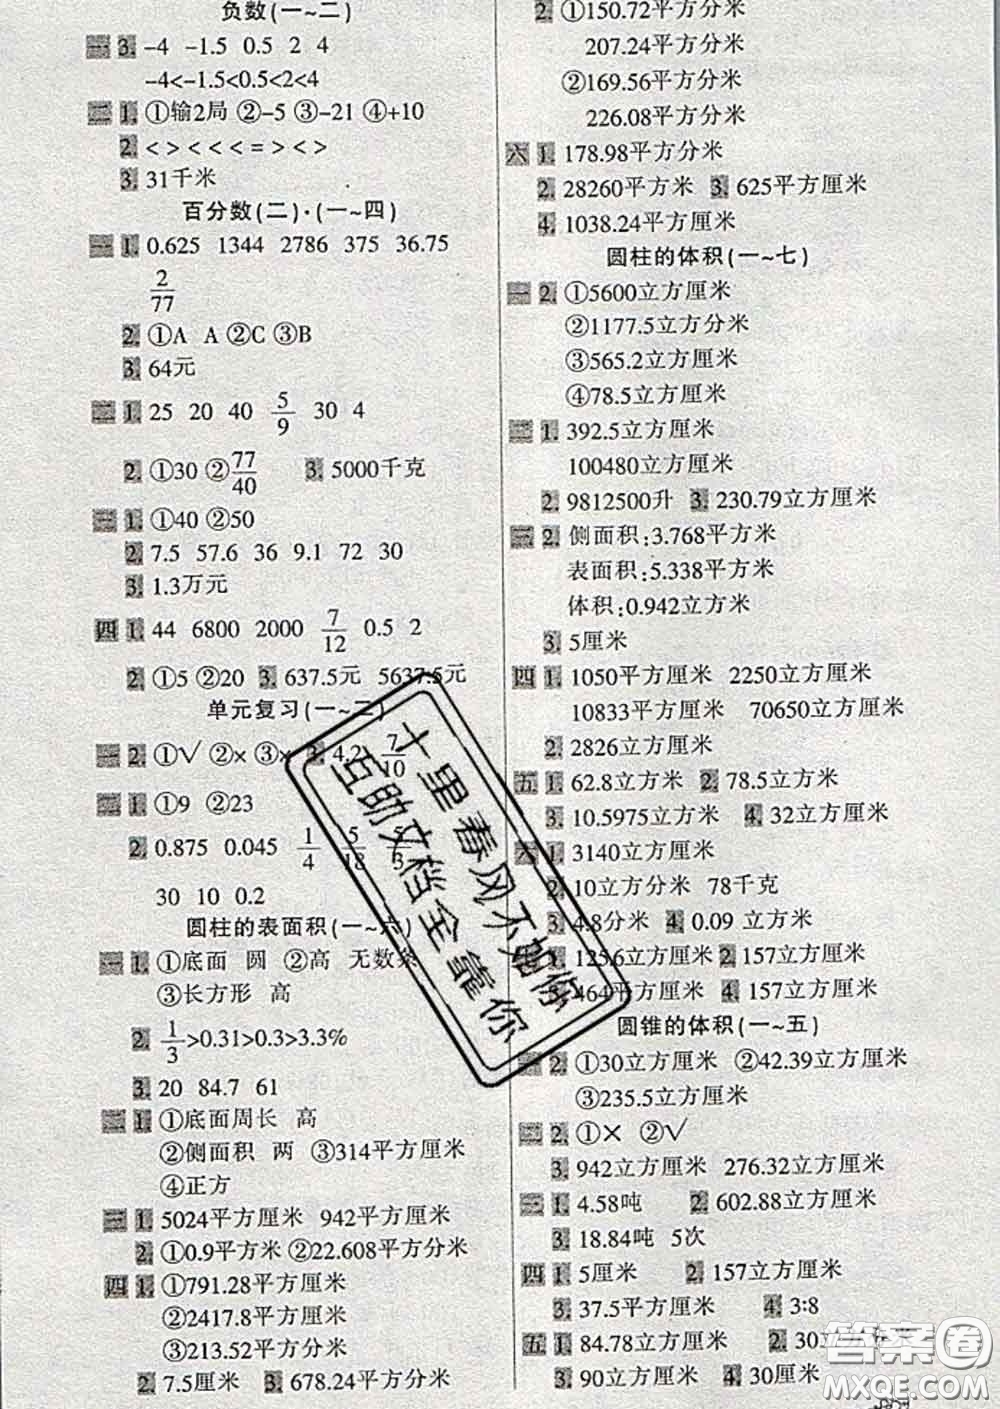 负数(一~二)
一 3. -4 -1.5 0.5 2 4
-4<-1.5<0.5<2<4
二 1. ①输2局 ②-5 ③-21 ④+10
2. < > < < < = > < >
3. 31千米
百分数(二)·(一~四)
一 1. 0.625 1344 2786 375 36.75
2/77
2. ①A A ②C ③B
3. 64元
二 1. 25 20 40 5/9 30 4
2. ①30 ②77/40 3. 5000千克
三 1. ①40 ②50
2. 7.5 57.6 36 9.1 72 30
3. 1.3万元
四 1. 44 6800 2000 7/12 0.5 2
2. ①5 ②20 3. 637.5元 5637.5元
单元复习(一~二)
一 2. ①√ ②× ③× 3. 4.2 7/10
二 1. ①9 ②23
2. 0.875 0.045 1/4 5/18 5/3
30 10 0.2
圆柱的表面积(一~六)
一 1. ①底面 圆 ②高 无数条
③长方形 高
2. 1/3>0.31>0.3>3.3%
3. 20 84.7 61
二 1. ①底面周长 高
②侧面积 两 ③314平方厘米
④正方
三 1. 5024平方厘米 942平方厘米
2. ①0.9平方米 ②22.608平方分米
四 1. ①791.28平方厘米
②2417.8平方厘米
③213.52平方分米
2. 7.5厘米 3. 678.24平方厘米
2. ①150.72平方分米
207.24平方分米
②169.56平方分米
226.08平方分米
六 1. 178.98平方分米
2. 28260平方米 3. 625平方厘米
4. 1038.24平方厘米
圆柱的体积(一~七)
一 2. ①5600立方厘米
②1177.5立方分米
③565.2立方厘米
④78.5立方厘米
二 1. 392.5立方厘米
100480立方厘米
2. 9812500升 3. 230.79立方厘米
三 2. 侧面积:3.768平方米
表面积:5.338平方米
体积:0.942立方米
3. 5厘米
四 1. 1050平方厘米 2250立方厘米
10833平方厘米 70650立方厘米
2. 2826立方厘米
五 1. 62.8立方米 2. 78.5立方米
3. 10.5975立方米 4. 32立方厘米
六 1. 3140立方厘米
2. 10立方分米 78千克
3. 4.8分米 4. 0.09 立方米
1. 1256立方厘米 2. 157立方厘米
3. 464平方厘米 4. 157立方厘米
圆锥的体积(一~五)
一 2. ①30立方厘米 ②42.39立方厘米
③235.5立方厘米
二 2. ①× ②√
3. 942立方厘米 276.32立方厘米
三 1. 4.58吨 2. 602.88立方厘米
3. 18.84吨 5次
四 1. 5厘米 2. 157立方厘米
3. 37.5平方厘米 4. 3:8
五 1. 84.78立方厘米 2. 30立方分米
3. 90立方厘米 4. 30厘米
十里春风不如你
互助文档全靠你
答案圈
MXQE.COM